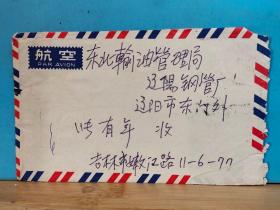 航空
PAR AVION
东北輸油管理局
辽陽钢管厂
辽阳市东门外
有年 收
吉林市嫩江路11-6-77